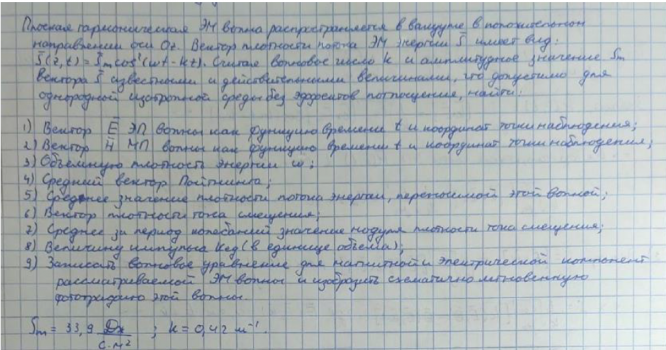 Плоская гармоническая ЭМ волна распространяется в вакууме в положительном
направлении оси Oz. Вектор плотности потока ЭМ энергии S имеет вид:
S(z,t) = Sm cos²(ωt - kz). Считая волновое число k и амплитудное значение Sm
вектора S известными и действительными величинами, что допустимо для
однородной изотропной среды без эффектов поглощения, найти:
1) Вектор E ЭП волны как функцию времени t и координат точки наблюдения;
2) Вектор H МП волны как функцию времени t и координат точки наблюдения;
3) Объемную плотность энергии w;
4) Средний вектор Пойтинга;
5) Среднее значение плотности потока энергии, переносимой этой волной;
6) Вектор плотности тока смещения;
7) Среднее за период колебаний значение модуля плотности тока смещения;
8) Величину импульса Kед (в единице объема);
9) Записать волновое уравнение для магнитной и электрической компонент
рассматриваемой ЭМ волны и изобразить схематично мгновенную
фотографию этой волны.
Sm = 33,9 Дж/с·м² ; k = 0,42 м⁻¹.